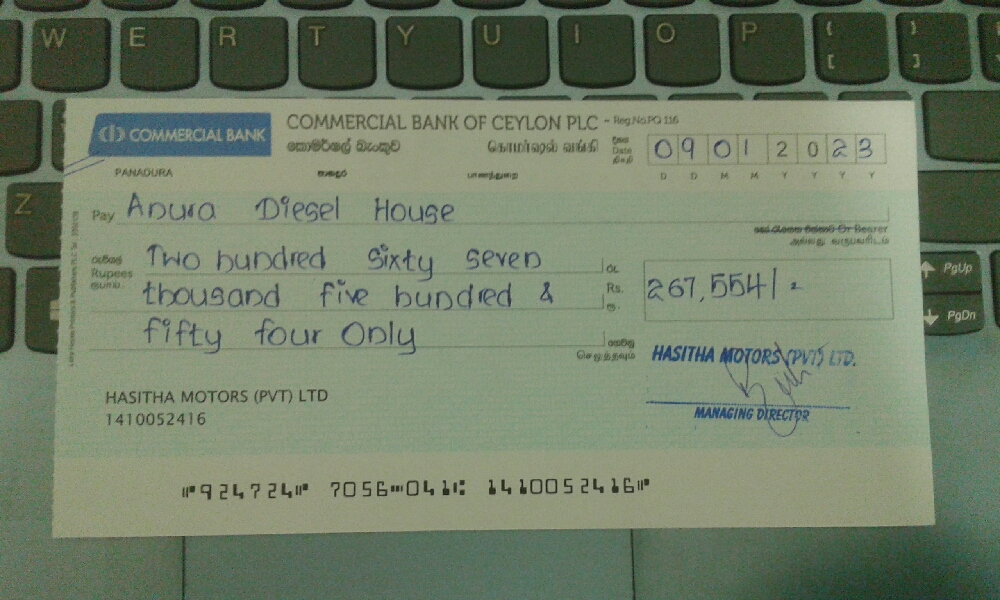 W E R T Y U I O P { [ } ]
Z
PgUp
PgDn
COMMERCIAL BANK
COMMERCIAL BANK OF CEYLON PLC - Reg.No.PQ 116
කොමර්ෂල් බැංකුව கொமர்ஷல் வங்கி
දිනය
Date
திகதி
0 9 0 1 2 0 2 3
D D M M Y Y Y Y
PANADURA පානදුර பாணந்துறை
Pay Anura Diesel House
Or Bearer
அல்லது
රුපියල්
Rupees
ரூபாய்
Two hundred sixty seven
thousand five hundred &
fifty four Only
රු.
Rs.
ரூ.
267,554/=
ගෙවනු
செலுத்தவும்
HASITHA MOTORS (PVT) LTD.
MANAGING DIRECTOR
HASITHA MOTORS (PVT) LTD
1410052416
⑈924724⑈ 7056⑉041⑆ 1410052416⑈